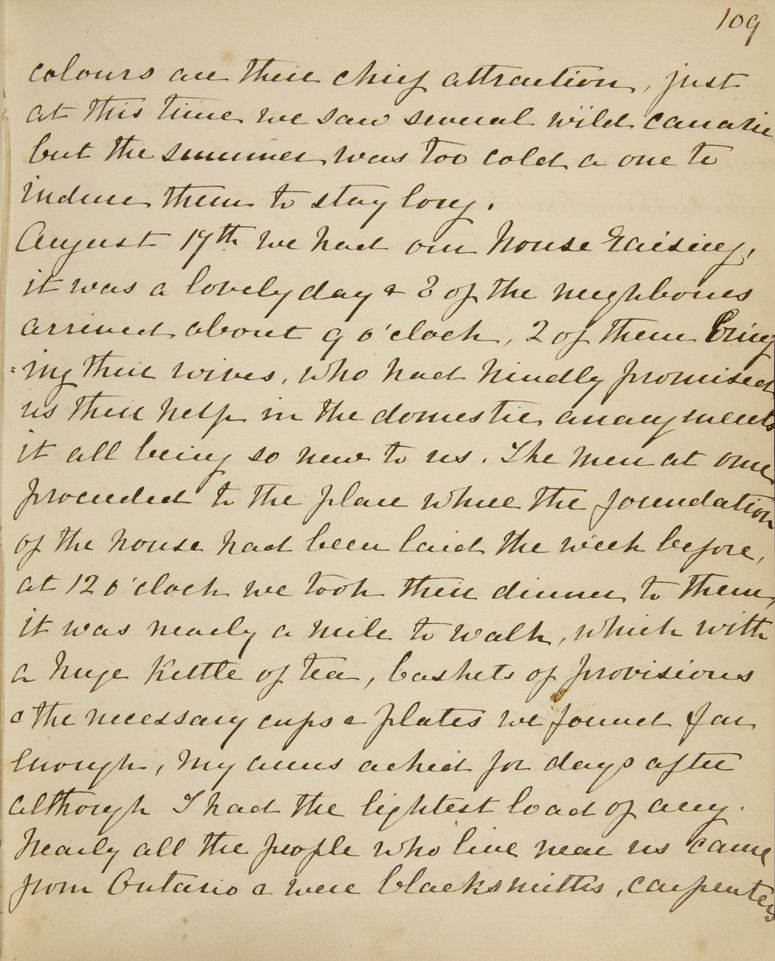 109
colours are their chief attraction, just
at this time we saw several wild canarie
but the summer was too cold a one to
induce them to stay long.
August 17th we had our house raising,
it was a lovely day & 8 of the neighbours
arrived about 9 o'clock, 2 of them bring
=ing their wives, who had kindly promised
us their help in the domestic arrangements
it all being so new to us. The men at once
proceeded to the place where the foundation
of the house had been laid the week before,
at 12 o'clock we took their dinner to them,
it was nearly a mile to walk, which with
a huge kettle of tea, baskets of provisions
& the necessary cups & plates we found far
enough, my arms ached for days after
although I had the lightest load of any.
Nearly all the people who live near us came
from Ontario & were blacksmiths, carpenters